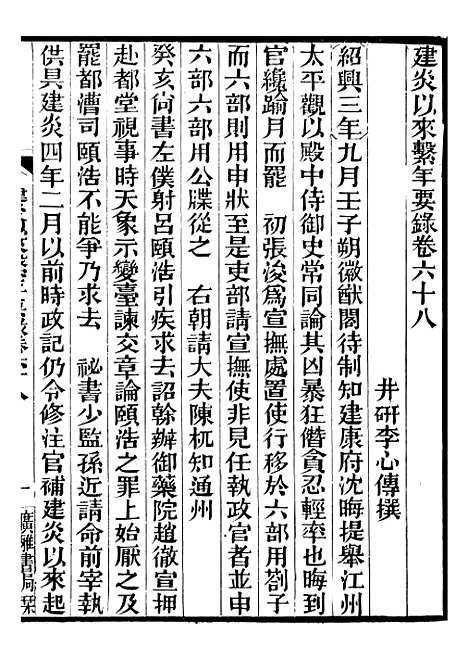 建炎以來繫年要錄卷六十八
井研李心傳撰
紹興三年九月壬子朔徽猷閣待制知建康府沈晦提舉江州
太平觀以殿中侍御史常同論其凶暴狂僭貪忍輕率也晦到
官纔踰月而罷　初張浚爲宣撫處置使行移於六部用劄子
而六部則用申狀至是吏部請宣撫使非見任執政官者並申
六部六部用公牒從之　右朝請大夫陳杬知通州
癸亥尚書左僕射呂頤浩引疾求去詔榦辦御藥院趙徹宣押
赴都堂視事時天象示變臺諫交章論頤浩之罪上始厭之及
罷都漕司頤浩不能爭乃求去　祕書少監孫近請命前宰執
供具建炎四年二月以前時政記仍令修注官補建炎以來起
一
廣雅書局栞